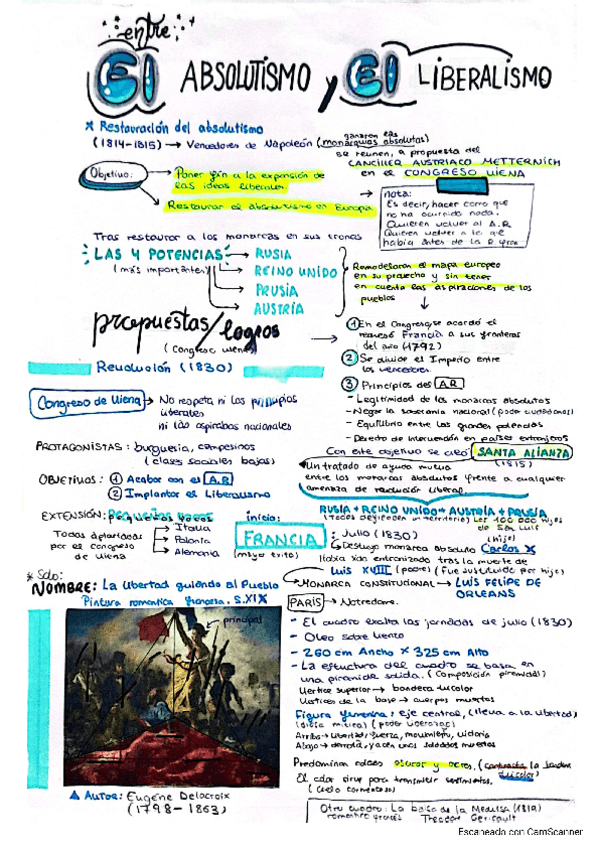 entre
El ABSOLUTISMO y El LIBERALISMO
* Restauración del absolutismo
ganaron las
(1814-1815) → Vencedores de Napoleón (monarquías absolutas)
se reunen, a propuesta del
CANCILLER AUSTRIACO METTERNICH
en el CONGRESO VIENA
Objetivo:
Poner fin a la expansión de
las ideas liberales
Restaurar el absolutismo en Europa
nota:
Es decir, hacer como que
no ha ocurrido nada.
Quieren volver al A.R
Quieren volver a lo que
había antes de la R
Tras restaurar a los monarcas en sus tronos
LAS 4 POTENCIAS → RUSIA
(más importantes)
REINO UNIDO
PRUSIA
AUSTRIA
Remodelaron el mapa europeo
en su provecho y sin tener
en cuenta las aspiraciones de los
pueblos
propuestas/logros
(Congreso Viena)
① En el Congreso se acordó el
regreso Francia a sus fronteras
del año (1792)
② Se dividió el Imperio entre
los vencedores.
③ Principios del A.R
- Legitimidad de los monarcas absolutos
- Negar la soberanía nacional (poder ciudadanos)
- Equilibrio entre las grandes potencias
- Derecho de intervención en países extranjeros
Con este objetivo se creó SANTA ALIANZA
(1815)
Un tratado de ayuda mutua
entre los monarcas absolutos frente a cualquier
amenaza de revolución liberal.
RUSIA + REINO UNIDO + AUSTRIA + PRUSIA
Los 100 000 hijos
de San Luis
Revolución (1830)
Congreso de Viena → No respeta ni los principios
liberales
ni las aspiraciones nacionales
PROTAGONISTAS: burguesía, campesinos
(clases sociales bajas)
OBJETIVOS: ① Acabar con el A.R
② Implantar el Liberalismo
EXTENSIÓN: pequeños focos
Todas aplastadas
por el congreso
de Viena
Italia
Polonia
Alemania
inicio:
FRANCIA
(mayor éxito)
: Julio (1830)
→ Destituyo monarca absoluto Carlos X
(hijo)
Había sido entronizado tras la muerte de
LUIS XVIII (padre) (fue sustituido por hijo)
MONARCA CONSTITUCIONAL → LUIS FELIPE DE
ORLEANS
* Solo:
NOMBRE: La libertad guiando al Pueblo
Pintura romántica francesa. S.XIX
principal
PARÍS → Notredame.
- El cuadro exalta las jornadas de julio (1830)
- Oleo sobre lienzo
- 260 cm Ancho x 325 cm Alto
- La estructura del cuadro se basa en
una piramide solida. (Composición piramidal)
Vertice superior → bandera tricolor
Vertices de la base → cuerpos muertos
Figura femenina: eje central, (lleva a la libertad)
(poder liderazgo)
Arriba → libertad, fuerza, movimiento, victoria
Abajo → derrota, yacen unos soldados muertos
Predominan colores oscuros y ocres, (contrasta la bandera
tricolor
El color sirve para transmitir sentimientos.
(Cielo tormentoso)
▲ AUTOR: Eugène Delacroix
(1798-1863)
Otro cuadro: La balsa de la Medusa (1819)
romantico francés Theodor Gericault
Escaneado con CamScanner